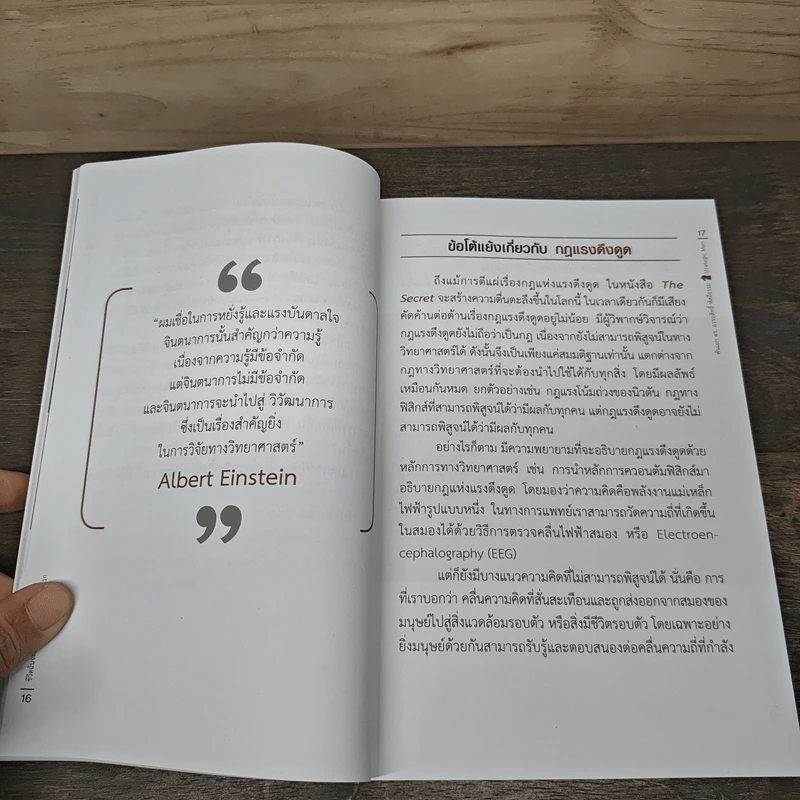 “ผมเชื่อในการหยั่งรู้และแรงบันดาลใจ
จินตนาการนั้นสำคัญกว่าความรู้
เนื่องจากความรู้มีข้อจำกัด
แต่จินตนาการไม่มีข้อจำกัด
และจินตนาการจะนำไปสู่ วิวัฒนาการ
ซึ่งเป็นเรื่องสำคัญยิ่ง
ในการวิจัยทางวิทยาศาสตร์”
Albert Einstein
16
17
ข้อโต้แย้งเกี่ยวกับ กฎแรงดึงดูด
ถึงแม้การตีแผ่เรื่องกฎแห่งแรงดึงดูด ในหนังสือ The
Secret จะสร้างความตื่นตะลึงขึ้นในโลกนี้ ในเวลาเดียวกันก็มีเสียง
คัดค้านต่อต้านเรื่องกฎแรงดึงดูดอยู่ไม่น้อย มีผู้วิพากษ์วิจารณ์ว่า
กฎแรงดึงดูดยังไม่ถือว่าเป็นกฎ เนื่องจากยังไม่สามารถพิสูจน์ในทาง
วิทยาศาสตร์ได้ ดังนั้นจึงเป็นเพียงแค่สมมติฐานเท่านั้น แตกต่างจาก
กฎทางวิทยาศาสตร์ที่จะต้องนำไปใช้ได้กับทุกสิ่ง โดยมีผลลัพธ์
เหมือนกันหมด ยกตัวอย่างเช่น กฎแรงโน้มถ่วงของนิวตัน กฎทาง
ฟิสิกส์ที่สามารถพิสูจน์ได้ว่ามีผลกับทุกคน แต่กฎแรงดึงดูดอาจยังไม่
สามารถพิสูจน์ได้ว่ามีผลกับทุกคน
อย่างไรก็ตาม มีความพยายามที่จะอธิบายกฎแรงดึงดูดด้วย
หลักการทางวิทยาศาสตร์ เช่น การนำหลักการควอนตัมฟิสิกส์มา
อธิบายกฎแห่งแรงดึงดูด โดยมองว่าความคิดคือพลังงานแม่เหล็ก
ไฟฟ้ารูปแบบหนึ่ง ในทางการแพทย์เราสามารถวัดความถี่ที่เกิดขึ้น
ในสมองได้ด้วยวิธีการตรวจคลื่นไฟฟ้าสมอง หรือ Electroen-
cephalography (EEG)
แต่ก็ยังมีบางแนวความคิดที่ไม่สามารถพิสูจน์ได้ นั่นคือ การ
ที่เราบอกว่า คลื่นความคิดที่สั่นสะเทือนและถูกส่งออกจากสมองของ
มนุษย์ไปสู่สิ่งแวดล้อมรอบตัว หรือสิ่งมีชีวิตรอบตัว โดยเฉพาะอย่าง
ยิ่งมนุษย์ด้วยกันสามารถรับรู้และตอบสนองต่อคลื่นความถี่ที่กำลัง